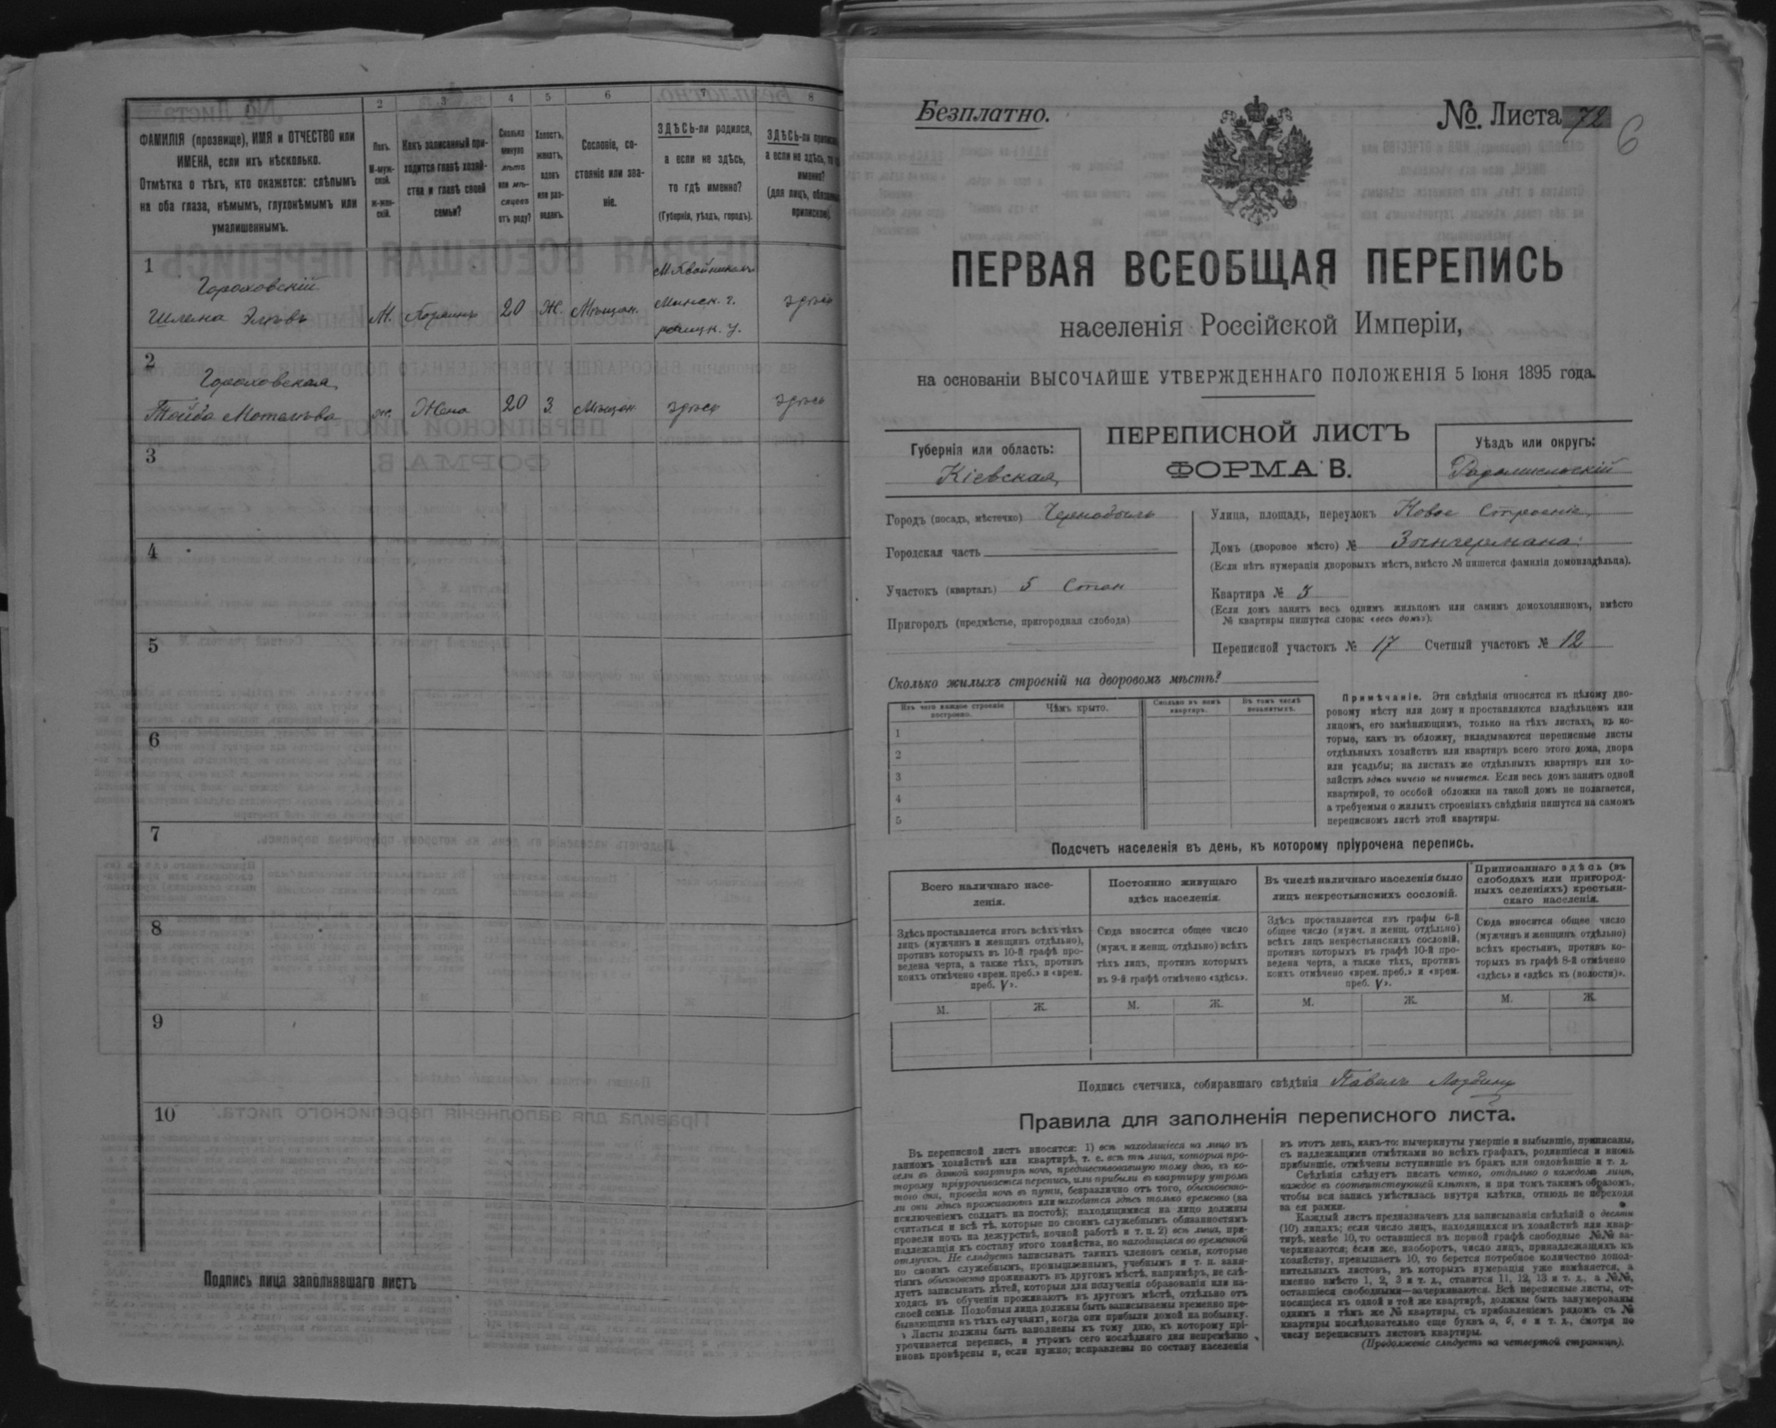 1
2
3
4
5
6
7
8
ФАМИЛІЯ (прозвище), ИМЯ и ОТЧЕСТВО или
ИМЕНА, если ихъ нѣсколько.
Отмѣтка о тѣхъ, кто окажется: слѣпымъ
на оба глаза, нѣмымъ, глухонѣмымъ или
умалишеннымъ.
Полъ.
М-муж-
ской.
ж-жен-
скій.
Какъ записанный при-
ходится главѣ хозяй-
ства и главѣ своей
семьи?
Сколько
минуло
лѣтъ
или мѣ-
сяцевъ
отъ роду?
Холостъ,
женатъ,
вдовъ
или раз-
веденъ.
Сословіе, со-
стояніе или зва-
ніе.
ЗДѢСЬ-ли родился,
а если не здѣсь,
то гдѣ именно?
(Губернія, уѣздъ, городъ).
ЗДѢСЬ-ли
а если не здѣсь,
именно?
(для лицъ,
1
Гороховскій
Шлема
М.
20
Ж.
Мѣщан.
Минск. г.
здѣсь
2
Гороховская
Жена
20
З.
Мѣщан.
здѣсь
здѣсь
3
4
5
6
7
8
9
10
Подпись лица заполнявшаго листъ
Безплатно.
№ Листа 72
6
ПЕРВАЯ ВСЕОБЩАЯ ПЕРЕПИСЬ
населенія Россійской Имперіи,
на основаніи ВЫСОЧАЙШЕ УТВЕРЖДЕННАГО ПОЛОЖЕНІЯ 5 Іюня 1895 года.
Губернія или область:
Кіевская
ПЕРЕПИСНОЙ ЛИСТЪ
ФОРМА В.
Уѣздъ или округъ:
Радомысльскій
Городъ (посадъ, мѣстечко) Чернобыль
Городская часть
Участокъ (кварталъ) 5 Стан
Пригородъ (предмѣстье, пригородная слобода)
Улица, площадь, переулокъ Новое Строеніе
Домъ (дворовое мѣсто) №
(Если нѣтъ нумераціи дворовыхъ мѣстъ, вмѣсто № пишется фамилія домовладѣльца).
Квартира № 3
(Если домъ занятъ весь однимъ жильцомъ или самимъ домохозяиномъ, вмѣсто
№ квартиры пишутся слова: «весь домъ»).
Переписной участокъ № 17 Счетный участокъ № 12
Сколько жилыхъ строеній на дворовомъ мѣстѣ?
Изъ чего каждое строеніе
построено.
Чѣмъ крыто.
Сколько въ немъ
квартиръ.
Въ томъ числѣ
незанятыхъ.
1
2
3
4
5
Примѣчаніе. Эти свѣдѣнія относятся къ цѣлому дво-
ровому мѣсту или дому и проставляются владѣльцемъ или
лицомъ, его замѣняющимъ, только на тѣхъ листахъ, въ ко-
торые, какъ въ обложку, вкладываются переписные листы
отдѣльныхъ хозяйствъ или квартиръ всего этого дома, двора
или усадьбы; на листахъ же отдѣльныхъ квартиръ или хо-
зяйствъ здѣсь ничего не пишется. Если весь домъ занятъ одной
квартирой, то особой обложки на такой домъ не полагается,
а требуемыя о жилыхъ строеніяхъ свѣдѣнія пишутся на самомъ
переписномъ листѣ этой квартиры.
Подсчетъ населенія въ день, къ которому пріурочена перепись.
Всего наличнаго насе-
ленія.
Здѣсь проставляется итогъ всѣхъ тѣхъ
лицъ (мужчинъ и женщинъ отдѣльно),
противъ которыхъ въ 10-й графѣ про-
ведена черта, а также тѣхъ, противъ
коихъ отмѣчено «врем. преб.» и «врем.
преб. V».
Постоянно живущаго
здѣсь населенія.
Сюда вносится общее число
(мужч. и женщ. отдѣльно) всѣхъ
тѣхъ лицъ, противъ которыхъ
въ 9-й графѣ отмѣчено «здѣсь».
Въ числѣ наличнаго населенія было
лицъ некрестьянскихъ сословій.
Здѣсь проставляется изъ графы 6-й
общее число (мужч. и женщ. отдѣльно)
всѣхъ лицъ некрестьянскихъ сословій,
противъ которыхъ въ графѣ 10-й про-
ведена черта, а также тѣхъ, противъ
коихъ отмѣчено «врем. преб.» и «врем.
преб. V».
Приписаннаго здѣсь (въ
слободахъ или пригород-
ныхъ селеніяхъ) крестьян-
скаго населенія.
Сюда вносится общее число
(мужчинъ и женщинъ отдѣльно)
всѣхъ крестьянъ, противъ ко-
торыхъ въ графѣ 8-й отмѣчено
«здѣсь» и «здѣсь въ (волости)».
М. Ж. М. Ж. М. Ж. М. Ж.
Подпись счетчика, собиравшаго свѣдѣнія Павелъ
Правила для заполненія переписного листа.
Въ переписной листъ вносятся: 1) всѣ находящіеся на лицо въ
данномъ хозяйствѣ или квартирѣ, т. е. всѣ тѣ лица, которыя про-
вели въ данной квартирѣ ночь, предшествовавшую тому дню, къ ко-
торому пріурочивается перепись, или прибыли въ квартиру утромъ
того дня, проведя ночь въ пути, безразлично отъ того, обыкновенно-
ли они здѣсь проживаютъ или находятся здѣсь только временно (за
исключеніемъ солдатъ на постоѣ); находящимися на лицо должны
считаться и всѣ тѣ, которые по своимъ служебнымъ обязанностямъ
провели ночь на дежурствѣ, ночной работѣ и т. п. 2) всѣ лица, при-
надлежащія къ составу этого хозяйства, но находящіяся во временной
отлучкѣ. Не слѣдуетъ записывать такихъ членовъ семьи, которые
по своимъ служебнымъ, промышленнымъ, учебнымъ и т. п. заня-
тіямъ обыкновенно проживаютъ въ другомъ мѣстѣ, напримѣръ, не слѣ-
дуетъ записывать дѣтей, которыя для полученія образованія или на-
ходясь въ обученіи проживаютъ въ другомъ мѣстѣ, отдѣльно отъ
своей семьи. Подобныя лица должны быть записываемы временно пре-
бывающими въ тѣхъ случаяхъ, когда они прибыли домой на побывку.
Листы должны быть заполнены къ тому дню, къ которому прі-
урочивается перепись, и утромъ сего послѣдняго дня непремѣнно
вновь провѣрены и, если нужно, исправлены по составу населенія
въ этотъ день, какъ-то: вычеркнуты умершіе и выбывшіе, приписаны,
съ надлежащими отмѣтками во всѣхъ графахъ, родившіеся и вновь
прибывшіе, отмѣчены вступившіе въ бракъ или овдовѣвшіе и т. д.
Свѣдѣнія слѣдуетъ писать четко, отдѣльно о каждомъ лицѣ,
каждое въ соотвѣтствующей клѣткѣ, и при томъ такимъ образомъ,
чтобы вся запись умѣстилась внутри клѣтки, отнюдь не переходя
за ея рамки.
Каждый листъ предназначенъ для записыванія свѣдѣній о десяти
(10) лицахъ; если число лицъ, находящихся въ хозяйствѣ или квар-
тирѣ, менѣе 10, то оставшіеся въ первой графѣ свободные №№ за-
черкиваются; если же, наоборотъ, число лицъ, принадлежащихъ къ
хозяйству, превышаетъ 10, то берется потребное количество допол-
нительныхъ листовъ, въ которыхъ нумерація уже измѣняется, а
именно вмѣсто 1, 2, 3 и т. д., ставится 11, 12, 13 и т. д., а №№,
оставшіеся свободными—зачеркиваются. Всѣ переписные листы, от-
носящіеся къ одной и той же квартирѣ, должны быть занумерованы
однимъ и тѣмъ же № квартиры, съ прибавленіемъ рядомъ съ №
квартиры послѣдовательно еще буквъ а, б, в и т. д., смотря по
числу переписныхъ листовъ квартиры.
(Продолженіе слѣдуетъ на четвертой страницѣ).